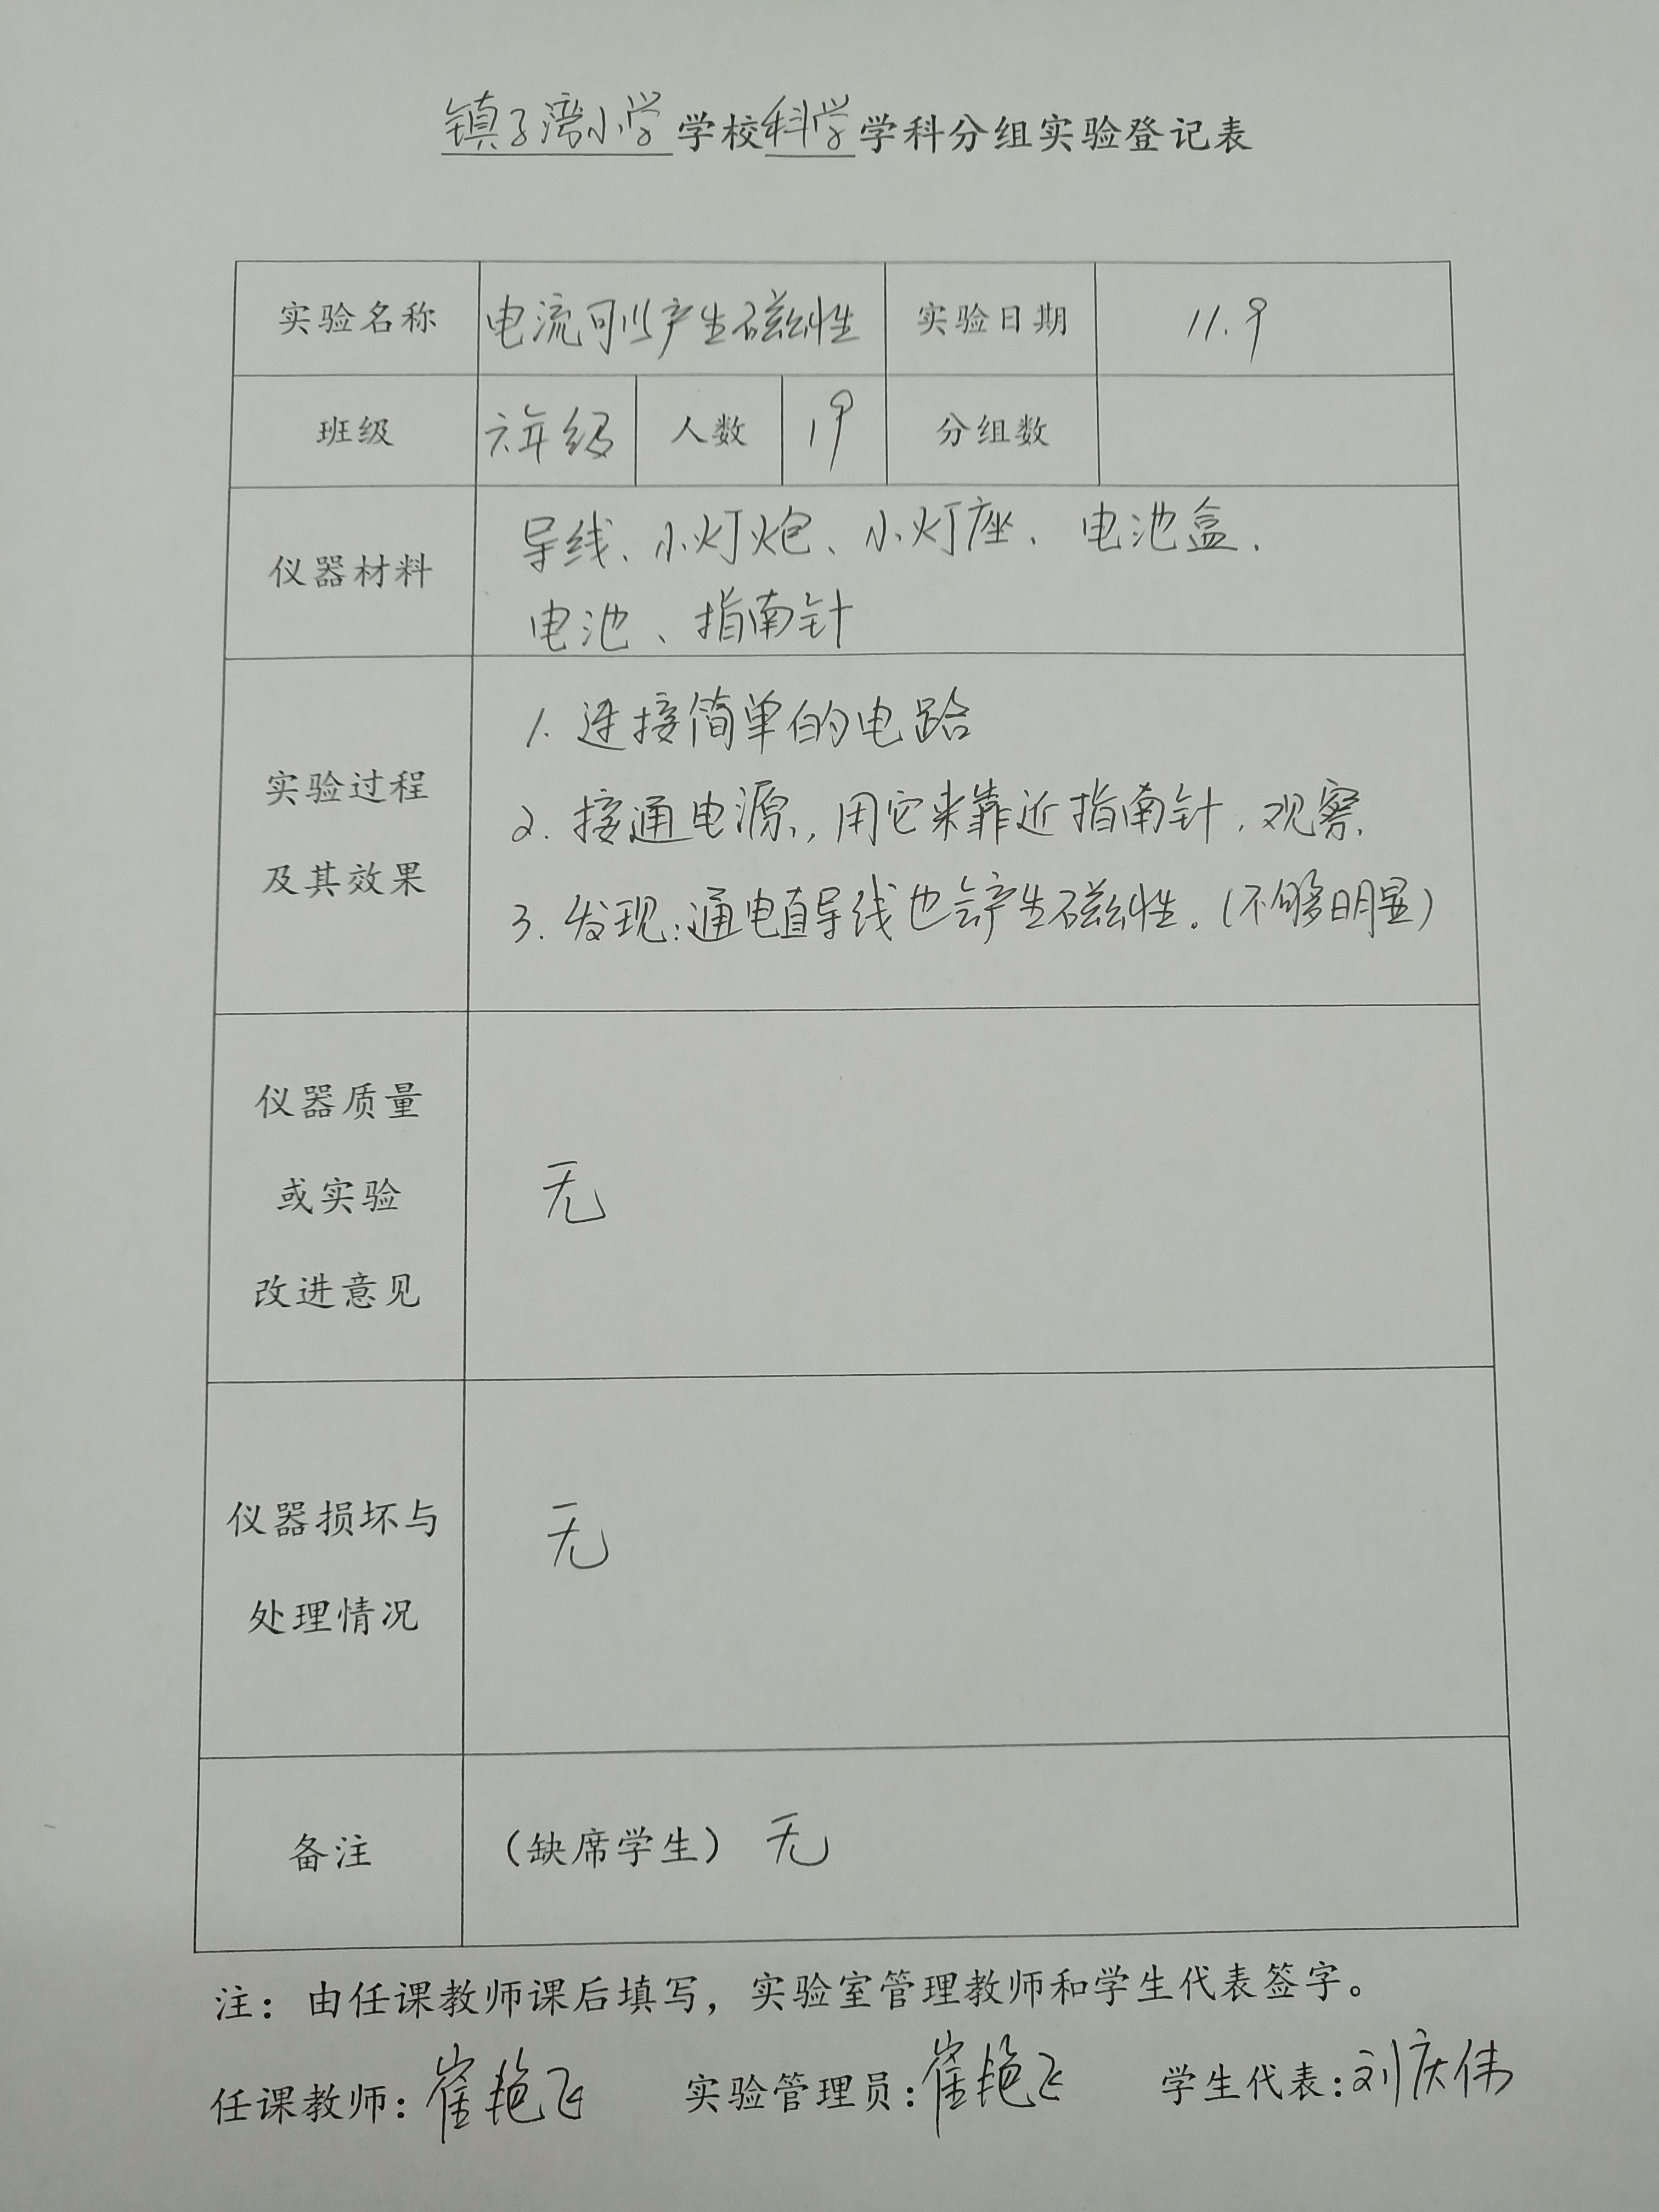 镇子湾小学学校科学学科分组实验登记表
实验名称 电流可以产生磁性 实验日期 11.9
班级 六年级 人数 19 分组数
仪器材料
导线、小灯炮、小灯座、电池盒、
电池、指南针
实验过程
及其效果
1. 连接简单的电路
2. 接通电源,用它来靠近指南针,观察.
3. 发现:通电直导线也会产生磁性。(不够明显)
仪器质量
或实验
改进意见
无
仪器损坏与
处理情况
无
备注 (缺席学生) 无
注:由任课教师课后填写,实验室管理教师和学生代表签字。
任课教师:崔艳飞 实验管理员:崔艳飞 学生代表:刘庆伟